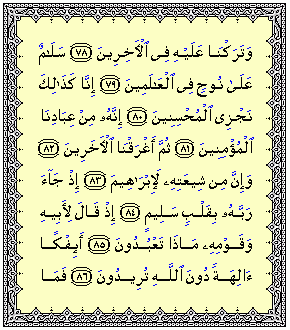 وَتَرَكْنَا عَلَيْهِ فِى ٱلْـَٔاخِرِينَ ﴿٧٨﴾ سَلَـٰمٌ
عَلَىٰ نُوحٍ فِى ٱلْعَـٰلَمِينَ ﴿٧٩﴾ إِنَّا كَذَٰلِكَ
نَجْزِى ٱلْمُحْسِنِينَ ﴿٨٠﴾ إِنَّهُۥ مِنْ عِبَادِنَا
ٱلْمُؤْمِنِينَ ﴿٨١﴾ ثُمَّ أَغْرَقْنَا ٱلْـَٔاخَرِينَ ﴿٨٢﴾
وَإِنَّ مِن شِيعَتِهِۦ لَإِبْرَٰهِيمَ ﴿٨٣﴾ إِذْ جَآءَ
رَبَّهُۥ بِقَلْبٍ سَلِيمٍ ﴿٨٤﴾ إِذْ قَالَ لِأَبِيهِ
وَقَوْمِهِۦ مَاذَا تَعْبُدُونَ ﴿٨٥﴾ أَئِفْكًا
ءَالِهَةً دُونَ ٱللَّهِ تُرِيدُونَ ﴿٨٦﴾ فَمَا